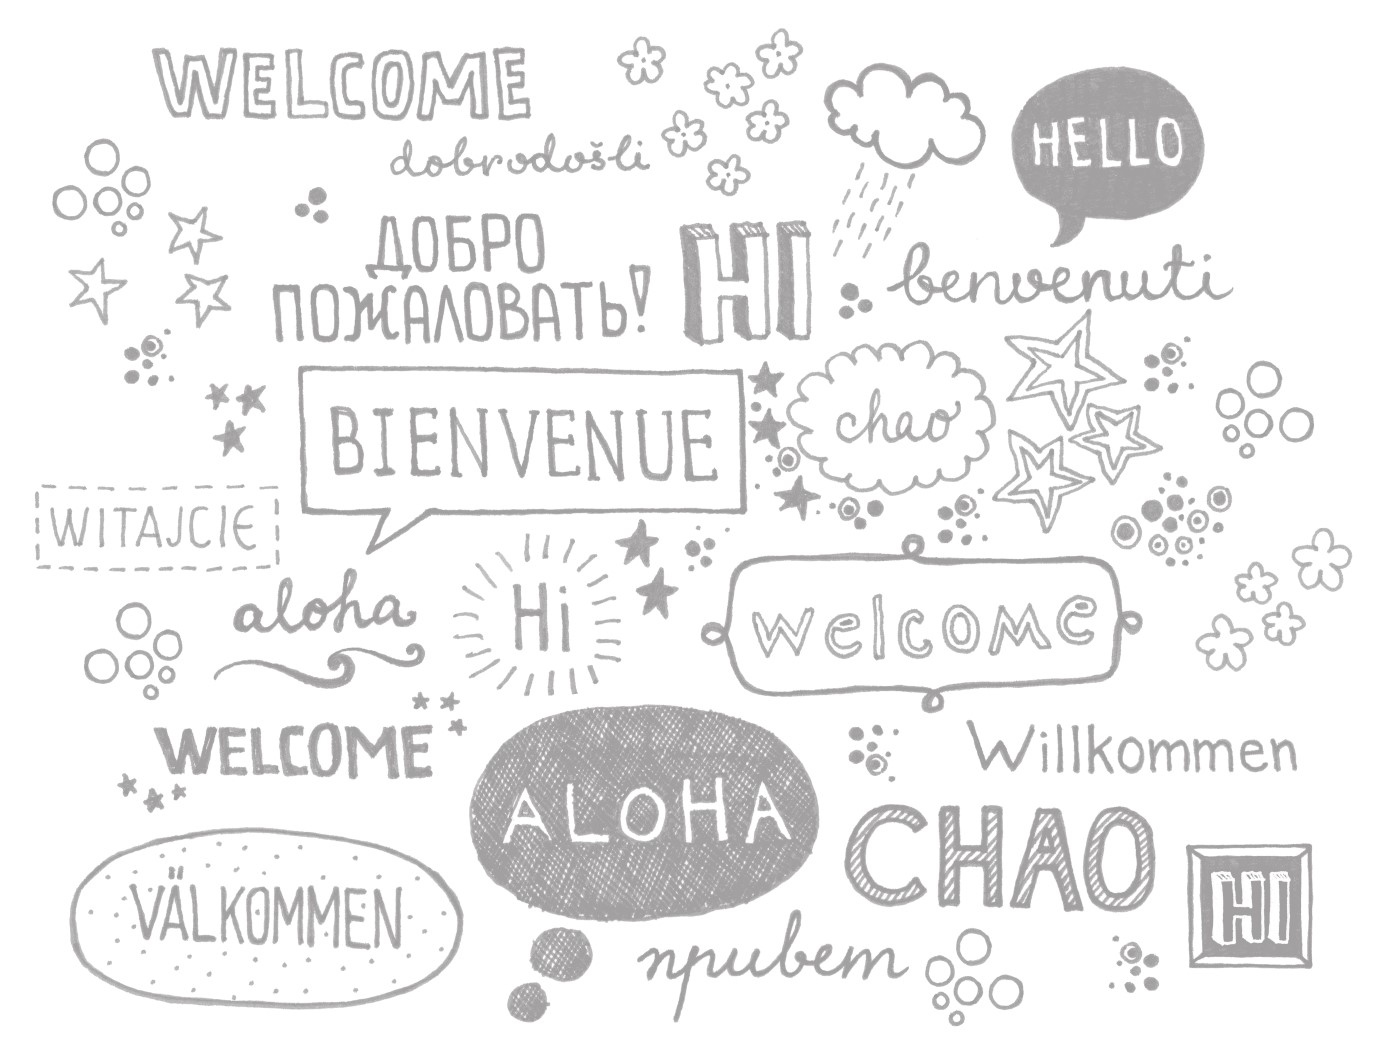 WELCOME
dobrodošli
HELLO
ДОБРО
ПОЖАЛОВАТЬ!
HI
benvenuti
BIENVENUE
chao
WITAJCIE
aloha
Hi
welcome
WELCOME
Willkommen
ALOHA
CHAO
VÄLKOMMEN
HI
привет